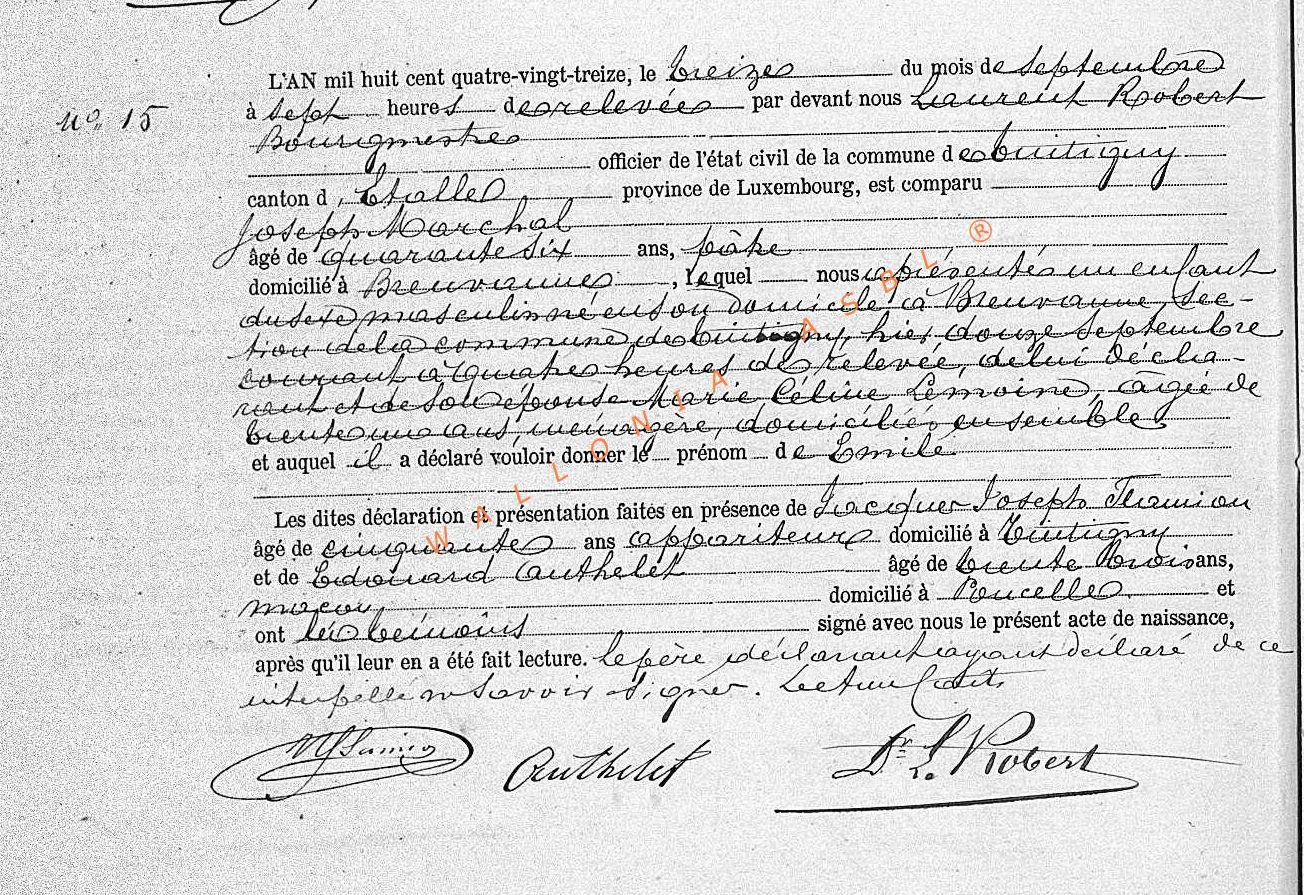 L'AN mil huit cent quatre-vingt-treize, le treize du mois de septembre
N° 15
à sept heures de relevée par devant nous Laurent Robert
Bourgmestre
officier de l'état civil de la commune de Tintigny
canton d'Etalle province de Luxembourg, est comparu
Joseph Marchal
âgé de quarante six ans, pâtre
domicilié à Breuvanne, lequel nous a présenté un enfant
du sexe masculin né en son domicile à Breuvanne, sec-
tion de la commune de Tintigny, hier, douze septembre
courant à quatre heures de relevée, de lui décla-
rant et de son épouse Marie Céline Lemoine, âgée de
trente un ans, ménagère, domiciliés ensemble
et auquel il a déclaré vouloir donner le prénom de Emile
Les dites déclaration et présentation faites en présence de Jacques Joseph
âgé de cinquante ans appariteur domicilié à Tintigny
et de Edouard Authelet âgé de trente trois ans,
maçon domicilié à Poncelle et
ont les témoins signé avec nous le présent acte de naissance,
après qu'il leur en a été fait lecture. Le père déclarant ayant déclaré de ce
interpellé ne savoir signer. Lecture faite
Authelet Dr L. Robert
WALLONIA ASBL ®